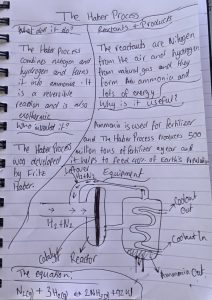 The Haber Process
What does it do?
The Haber Process
combines nitrogen and
hydrogen and forms
it into ammonia. It
is a reversible
reaction and is also
exothermic
Who invented it?
The Haber Process
was developed
by Fritz
Haber.
Reactants + Products
The reactants are Nitrogen
from the air and hydrogen
from natural gas and they
form ammonia and
lots of energy
Why is it useful?
Ammonia is used for fertilizer
and The Haber Process produces 500
million tons of fertilizer a year and
it helps to feed of Earth's
Equipment
Leftover
N2+H2
H2+N2
Coolant
Out
Coolant In
Catalyst
Reactor
Ammonia Out
The equation:
N2(g) + 3H2(g) ⇌ 2NH3(g) +92kJ